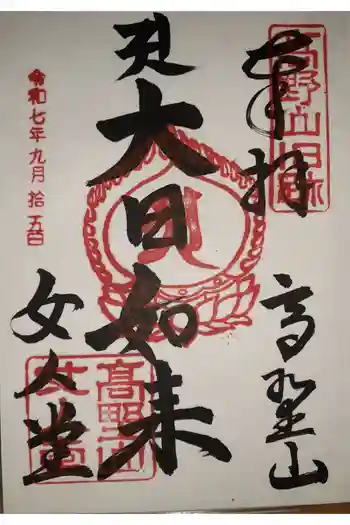 奉拝
高野山旧跡
高野山
大日如来
高野山
女人堂
女人堂
令和七年九月拾五日